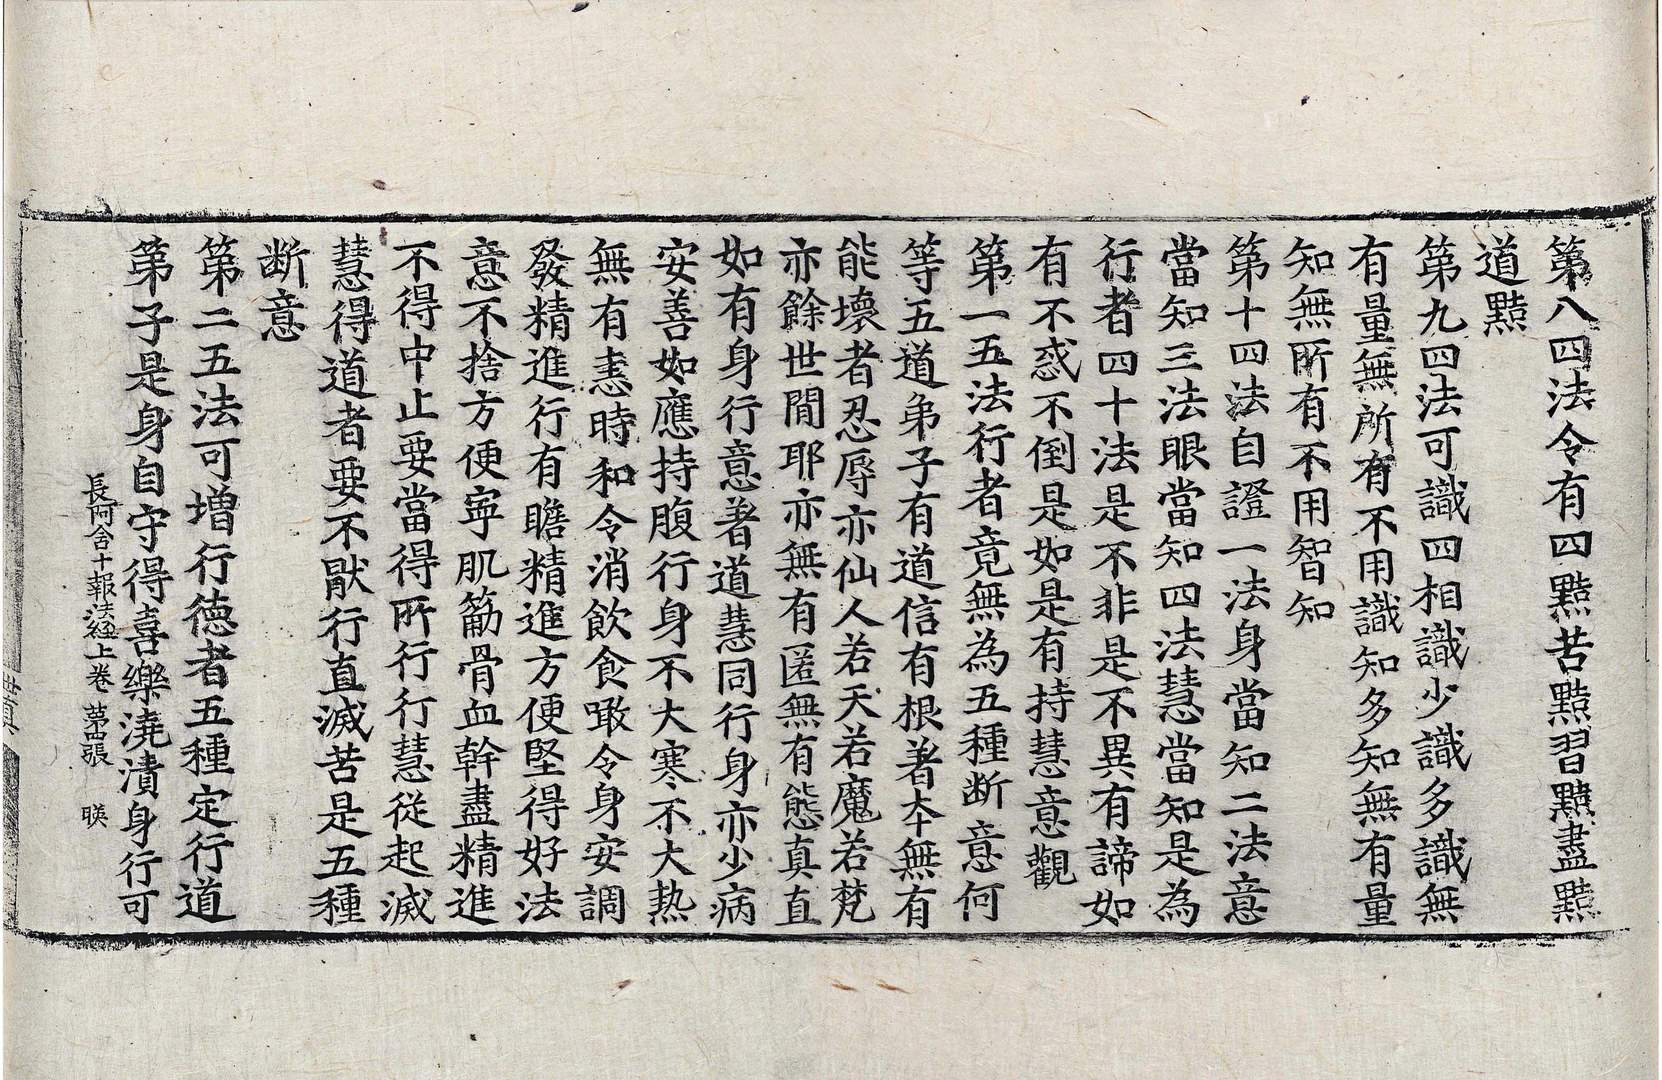 第八四法令有四黠苦黠習黠盡黠
道黠
第九四法可識四相識少識多識無
有量無所有不用識知多知無有量
知無所有不用智知
第十四法自證一法身當知二法意
當知三法眼當知四法慧當知是為
行者四十法是不非是不異有諦如
有不惑不倒是如是有持慧意觀
第一五法行者竟無為五種断意何
等五道弟子有道信有根著本無有
能壞者忍辱亦仙人若天若魔若梵
亦餘世間耶亦無有匿無有態真直
如有身行意著道慧同行身亦少病
安善如應持腹行身不大寒不大热
無有恚時和令消飲食噉令身安調
發精進行有瞻精進方便堅得好法
意不捨方便寧肌筋骨血幹盡精進
不得中止要當得所行行慧從起滅
慧得道者要不猒行直滅苦是五種
断意
第二五法可増行德者五種定行道
第子是身自守得喜樂澆漬身行可
長阿含十報法経上卷 苐張 暎